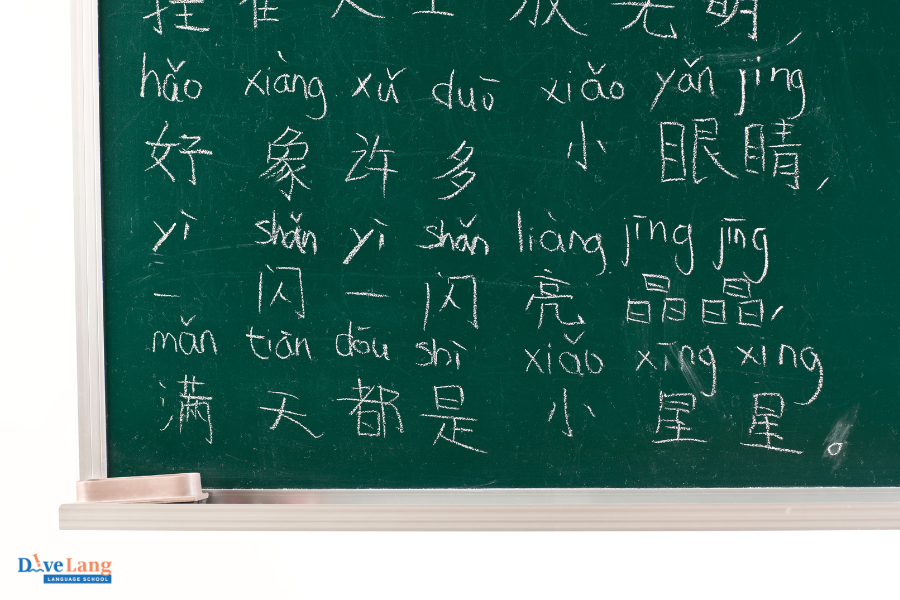 挂在天空放光明,
hǎo xiàng xǔ duō xiǎo yǎn jing
好象许多小眼睛,
yì shǎn yì shǎn liàng jīng jīng
一闪一闪亮晶晶,
mǎn tiān dōu shì xiǎo xīng xing
满天都是小星星。
DiveLang
LANGUAGE SCHOOL